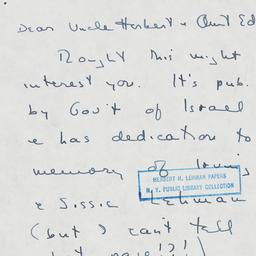 Dear Uncle Herbert & Aunt Ed
Thought this might
interest you. It's pub.
by Gov't of Israel
& has dedication to
memory of Irving
HERBERT H. LEHMAN PAPERS
N. Y. PUBLIC LIBRARY COLLECTION
& Sissie Lehman
(but I can't tell